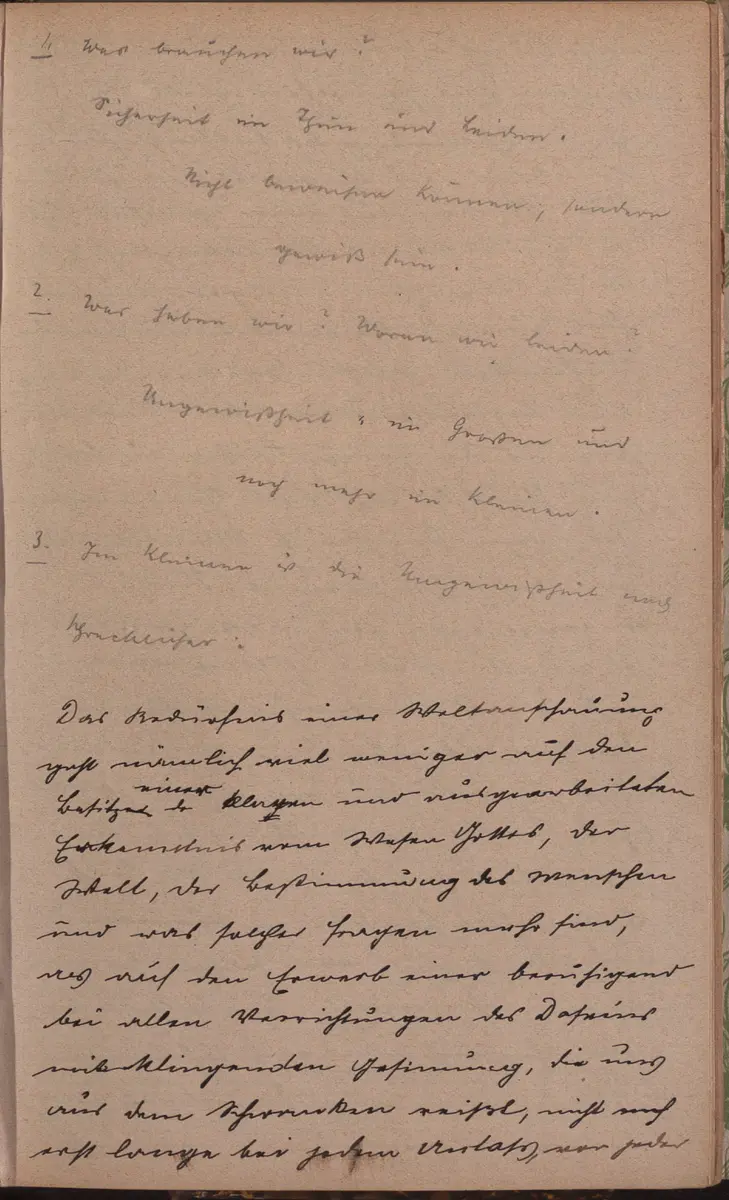 1. Was brauchen wir?
Sicherheit im Thun und Leiden.
Nicht beweisen können, sondern
gewiß sein.
2. Was haben wir? Woran wir leiden?
Ungewißheit im Großen und
noch mehr im Kleinen.
3. Im Kleinen ist die Ungewißheit noch
schrecklicher:
Das Bedürfnis einer Weltanschauung
geht nämlich viel weniger auf den
Besitz einer klaren und ausgearbeiteten
Erkenntnis vom Wesen Gottes, der
Welt, der Bestimmung des Menschen
und was solcher Fragen mehr sind,
als auf den Erwerb einer beruhigend
bei allen Verrichtungen des Daseins
mitklingenden Gesinnung, die uns
aus dem Schwanken reißt, nicht auch
erst lange bei jedem Anlaß, vor jeder